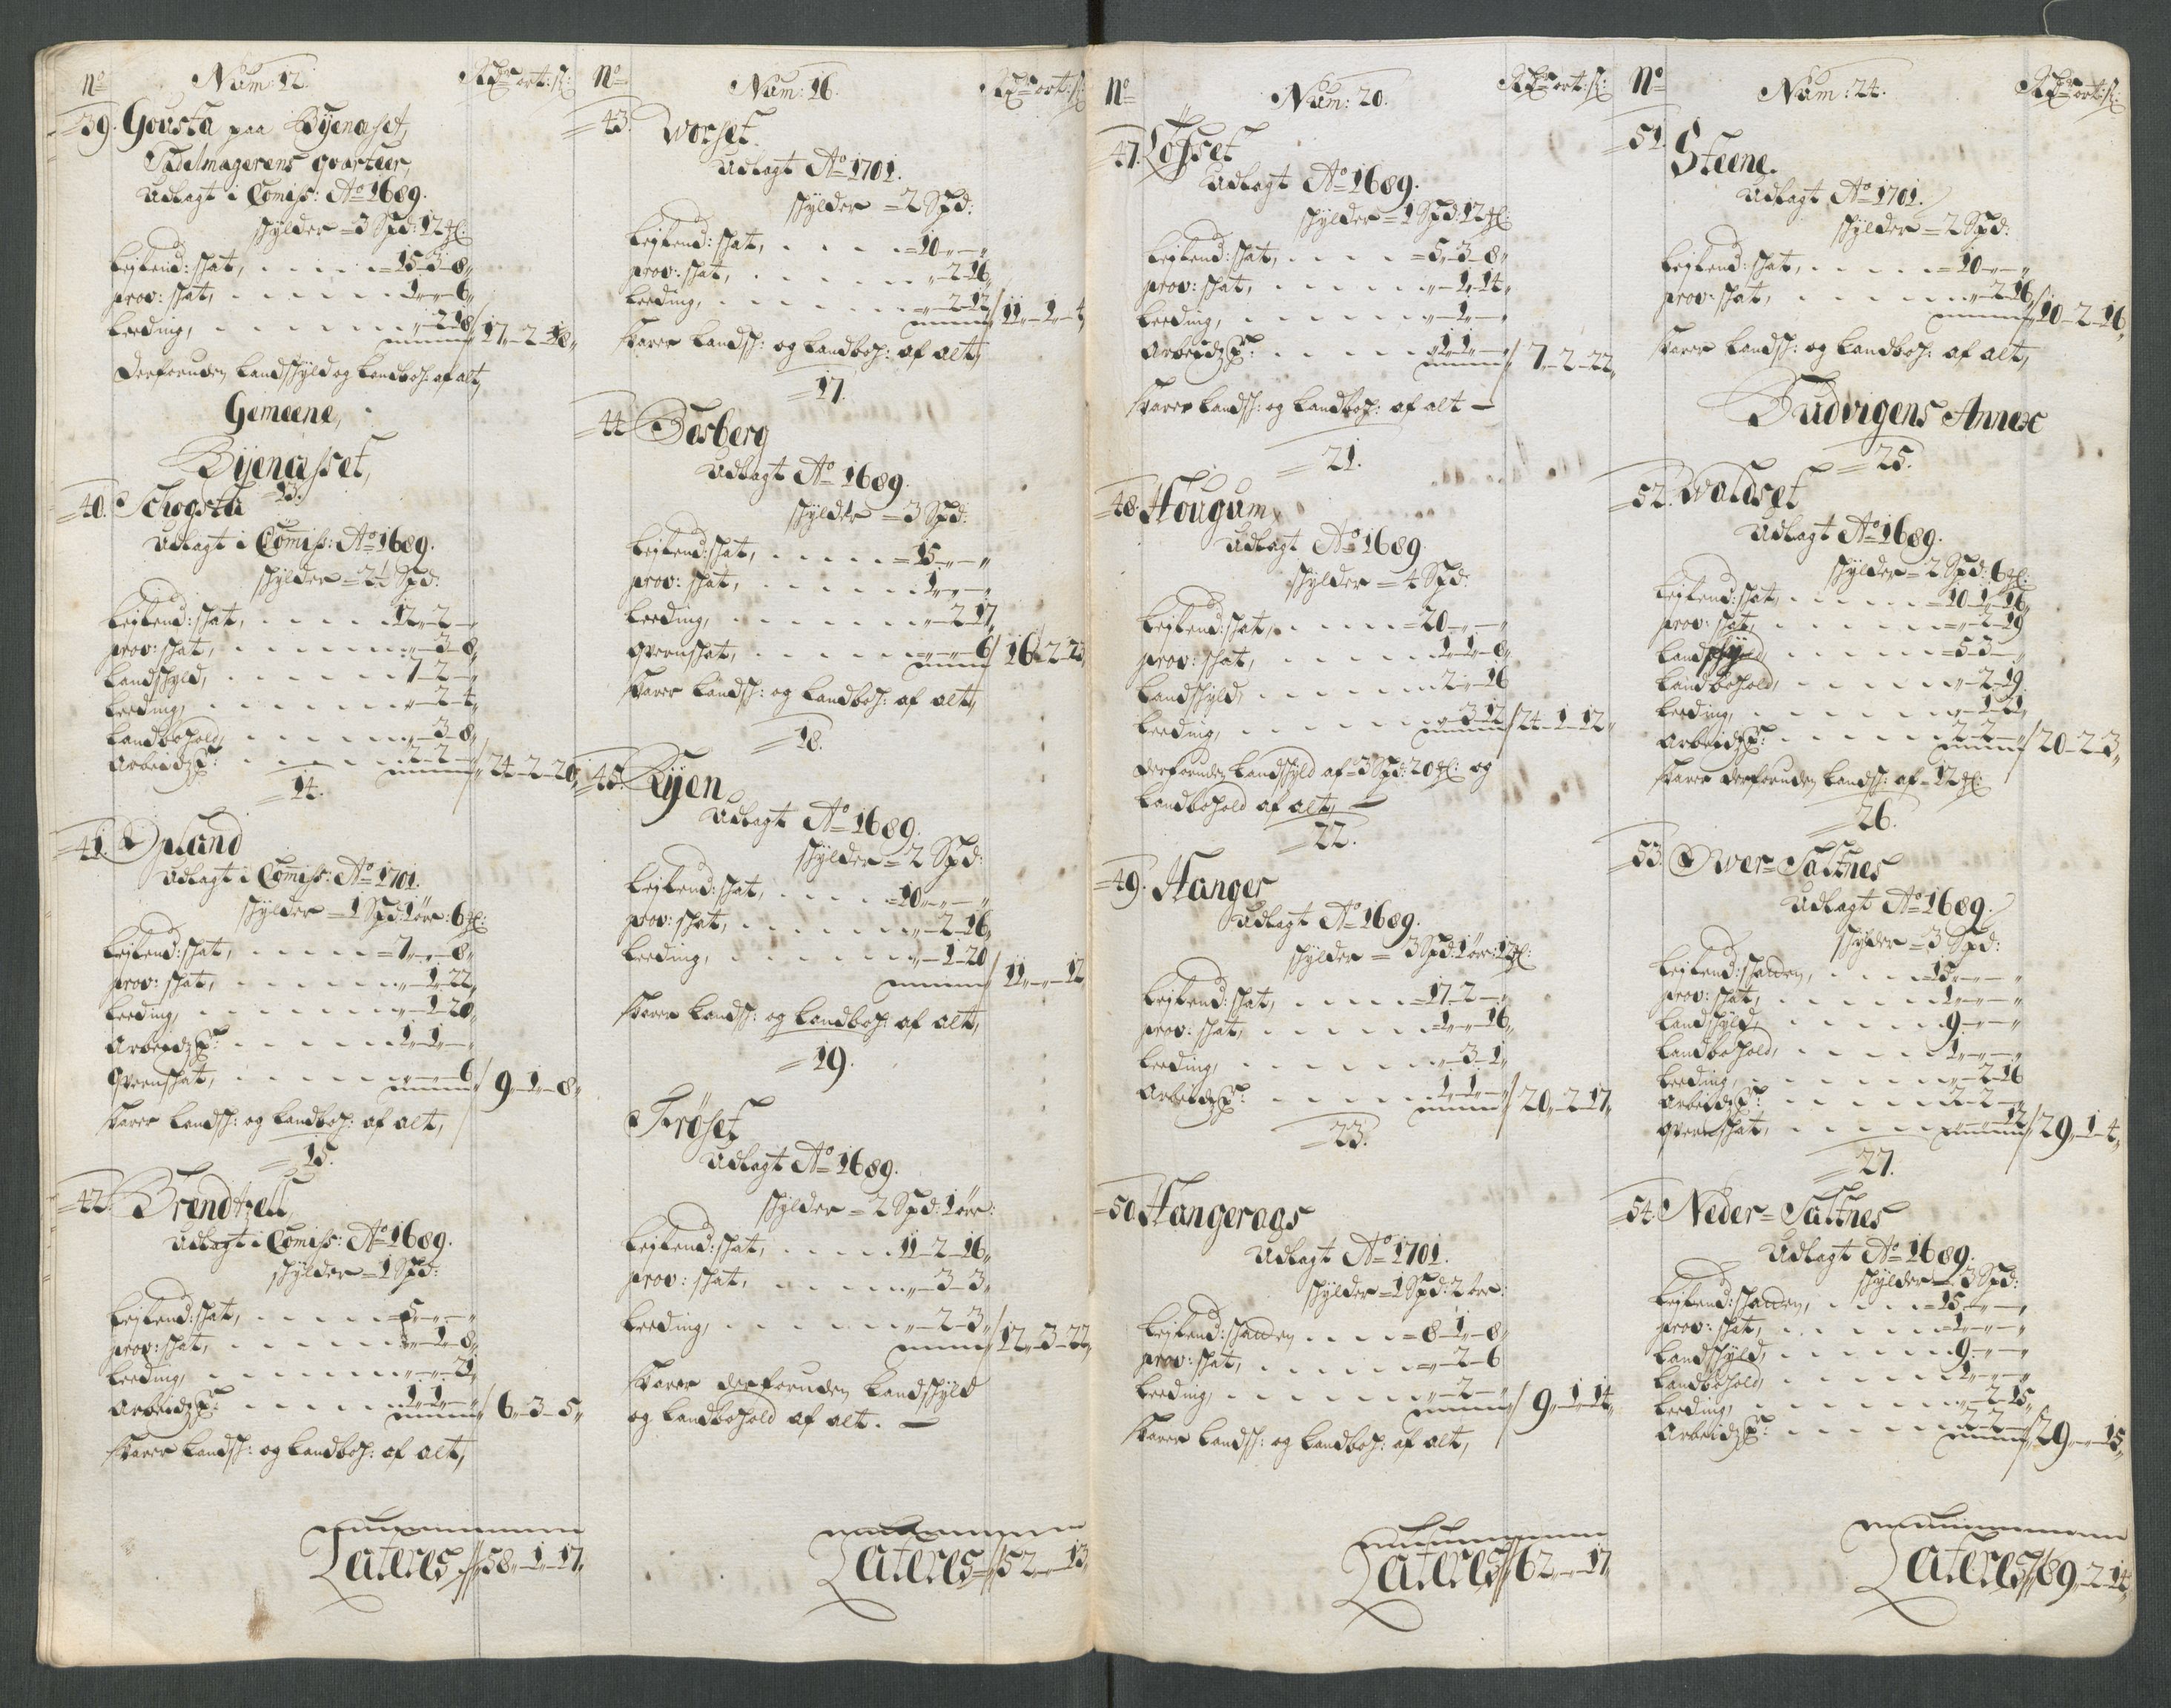 No Num: 12. Rdr ort: s:
39. Gousta paa Byenæset,
Sadelmagerens qvarteer,
Udlagt i Comiss: Ao 1689.
schylder = 3 Spd: 12 ℔:
Leylend: skat, . . . . . = 15 – 3 – 8„
prov: skat, . . . . . . 1 „ – 6„
Leeding, . . . . . . „ – 2 – 18 / 17 „ – 2 – 18„
Derforuden Landskyld og Landboh: af alt,
Gemeene,
Byenæsset,
13.
40. Schogsta
Udlagt i Comiss: Ao 1689.
schylder = 2½ Spd:
Leylend: skat, . . . . . 12 „ – 2 – „
prov: skat, . . . . . . „ – 3 – 8„
Landskyld, . . . . . . 7 – 2 – „
Leeding, . . . . . . „ – 2 – 4„
Landbohold, . . . . . „ – 3 – 8„
Arbeidz P: . . . . . 2 – 2 – „ / 24 – 2 – 20„
14.
41. Opland
Udlagt i Comiss: Ao 1701.
schylder = 1 Spd: 1 ör: 6 ℔:
Leylend: skat, . . . . . = 7 „ – 8„
prov: skat, . . . . . . „ – 1 – 22„
Leeding, . . . . . . „ – 1 – 20„
Arbeidz P: . . . . . 1 – 1 – „
Qvernskat, . . . . . . „ – „ – 6 / 9 „ – 1 – 8„
svarer Landsk: og Landboh: af alt,
15.
42. Brendtzell,
Udlagt i Comiss: Ao 1689.
schylder = 1 Spd:
Leylend: skat, . . . . . = 5 „ – „
prov: skat, . . . . . . „ – 1 – 8„
Leeding, . . . . . . „ – „ – 21
Arbeidz P: . . . . . 1 – 1 – „ / 6 „ – 3 – 5„
svarer Landsk: og Landboh: af alt,
Lateres // 58 „ – 1 „ – 17„
No Num: 16. Rdr ort: s:
43. Worset.
Udlagt Ao 1701.
schylder = 2 Spd:
Leylend: skat, . . . . . = 10 „ – „
prov: skat, . . . . . „ 2 – 16„
Leeding, . . . . . . „ – 2 – 12 / 11 „ – 1 „ – 4„
svarer Landsk: og Landboh: af alt,
17.
44. Bosberg
Udlagt Ao 1689.
schylder = 3 Spd:
Leylend: skat, . . . . . = 15 „ – „
prov: skat, . . . . . . 1 „ – „
Leeding, . . . . . . „ – 2 – 17„
Qvernskat, . . . . . . „ – „ – 6 / 16 – 2 – 23
svarer Landsk: og Landboh: af alt,
18.
45. Ryen
Udlagt Ao 1689.
schylder = 2 Spd:
Leylend: skat, . . . . = 10 „ – „
prov: skat, . . . . . . „ – 2 – 16„
Leeding, . . . . . . „ – 1 – 20 / 11 „ – „ – 12
svarer Landsk: og Landboh: af alt,
19.
Fröset,
Udlagt Ao 1689.
schylder = 2 Spd: 1 ör:
Leylend: skat, . . . . . 11 – 2 – 16„
prov: skat, . . . . . . „ – 3 – 3„
Leeding, . . . . . . „ – 2 – 3„ / 12 „ – 3 – 22„
svarer derforuden Landskyld
og Landbohold af alt. –
Lateres // 52 „ – 13
No Num: 20. Rdr ort: s:
47. Lofset
Udlagt Ao 1689.
schylder = 1 Spd: 12 ℔:
Leylend: skat, . . . . = 5 „ – 3 – 8„
prov: skat, . . . . . . „ – 1 – 14„
Leeding, . . . . . . „ – 1 – „
Arbeidz P: . . . . . . 1 – 1 – „ / 7 „ – 2 – 22„
svarer Landsk: og Landboh: af alt –
21.
48. Hougum,
Udlagt Ao 1689.
schylder = 4 Spd:
Leylend: skat, . . . . . = 20 „ – „
prov: skat, . . . . . . 1 – 1 – 8„
Landskyld, . . . . . . 2 „ – 16
Leeding, . . . . . . „ – 3 – 12 / 24 – 1 – 12„
Derforuden Landskyld af = 3 Spd: 20 ℔: og
Landbohold af alt, –
22.
49. Hanger
Udlagt Ao 1689.
schylder = 3 Spd: 1 ör: 12 ℔:
Leylend: skat, . . . . . = 17 – 2 – „
prov: skat, . . . . . . = 1 „ – 16„
Leeding, . . . . . . „ – 3 – 1„
Arbeidz P: . . . . . . 1 – 1 – „ / 20 „ – 2 – 17„
23.
50. Hangeraas
Udlagt Ao 1701.
schylder = 1 Spd: 2 ör:
Leylend: skatten . . . . = 8 – 1 „ – 8„
prov: skat, . . . . . . = „ – 2 – 6
Leeding, . . . . . . „ – 2 – „ / 9 „ – 1 – 14„
svarer Landsk: og Landboh: af alt,
Lateres // 62 „ – „ 17
No Num: 24. Rdr ort: s:
51. Steene.
Udlagt Ao 1701.
schylder = 2 Spd:
Leylend: skat, . . . . . = 10 „ – „
prov: skat, . . . . . . „ – 2 – 16 / 10 – 2 – 16„
svarer Landsk: og Landboh: af alt,
Budvigens Annex
25.
52. Waldset
Udlagt Ao 1689.
schylder = 2 Spd: 6 ℔:
Leylend: skat, . . . . . = 10 – 1 – 16„
prov: skat, . . . . . . = „ – 2 – 19
Landskyld, . . . . . . = 5 – 3 – „
Landbohold, . . . . . . „ – 2 – 19
Leeding, . . . . . . „ – 1 – 21
Arbeidz P: . . . . . . 2 – 2 – „ / 20 – 2 – 3„
svarer derforuden Landsk: af = 12 ℔:
26.
53. Ower = Saltnes
Udlagt Ao 1689.
schylder = 3 Spd:
Leylend: skatten, . . . . = 15 „ – „
prov: skat, . . . . . . 1 „ – „
Landskyld, . . . . . . 9 „ – „
Landbohold, . . . . . . 1 „ – „
Leeding, . . . . . . „ – 2 – 16
Arbeidz P: . . . . . . 2 – 2 – „
Qvernskat, . . . . . . „ – „ – 12 / 29 „ – 1 – 4„
27.
54. Neder = Saltnes
Udlagt Ao 1689.
schylder = 3 Spd:
Leylend: skatten, . . . . = 15 „ – „
prov: skat, . . . . . . = 1 „ – „
Landskyld, . . . . . . 9 „ – „
Landbohold, . . . . . . 1 „ – „
Leeding, . . . . . . „ – 2 – 15„
Arbeidz P: . . . . . . 2 – 2 – „ / 29 „ – „ 15„
Lateres // 89 „ – 2 – 14„